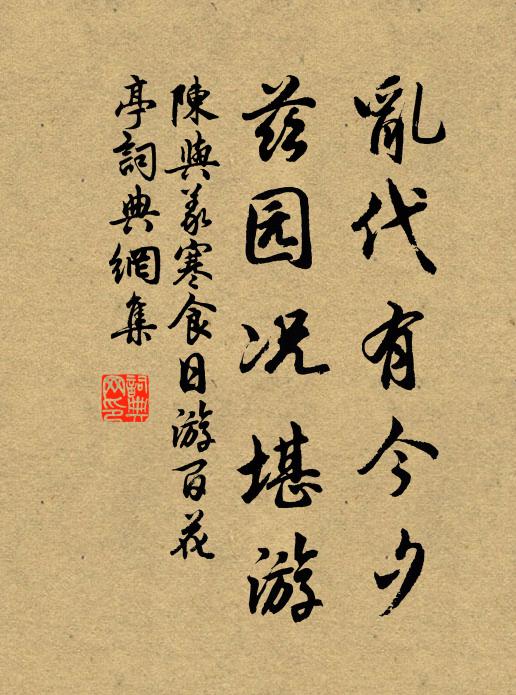 亂代有今夕
兹园况堪游
陳與義寒食日游百花
亭詞典網集
詞典網印